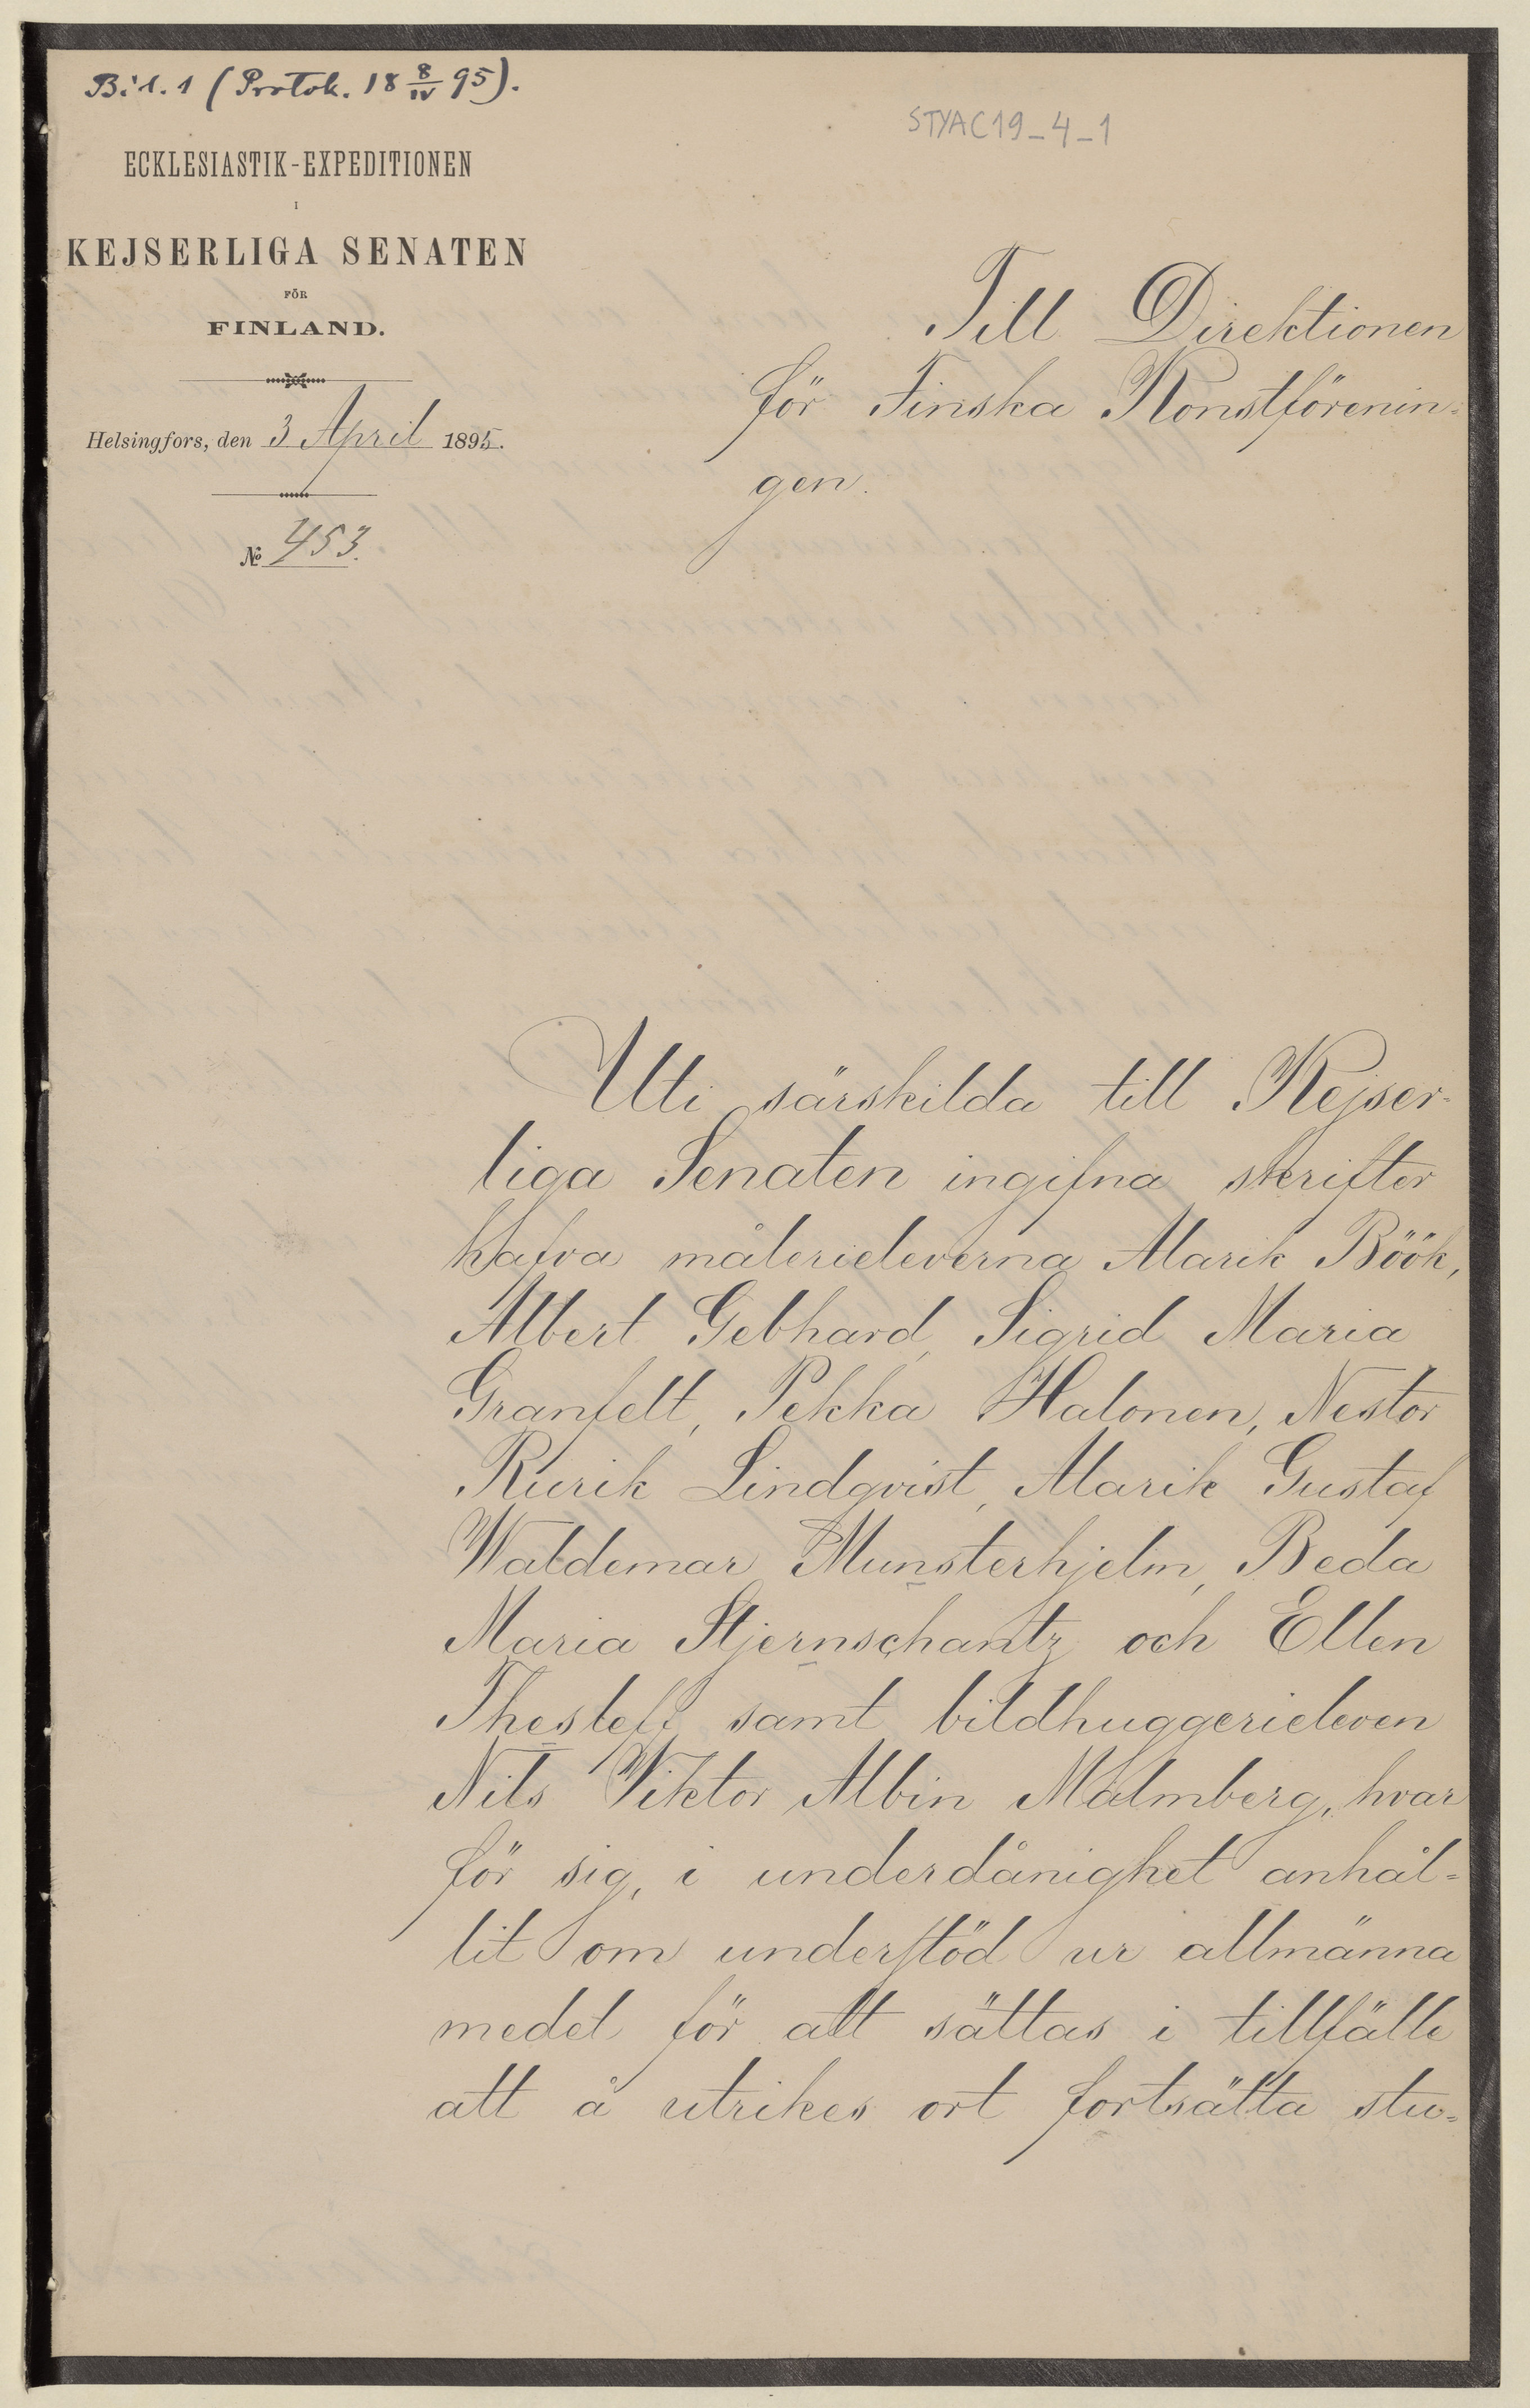 Bil. 1 (Protok. 18 8/IV 95).
STYAC19_4_1
ECKLESIASTIK-EXPEDITIONEN
I
KEJSERLIGA SENATEN
FÖR
FINLAND.
Helsingfors, den 3 April 1895.
№ 453.
Till Direktionen
för Finska Konstförenin-
gen.
Uti särskilda till Kejser-
liga Senaten ingifna skrifter
hafva målerieleverna Alarik Böök,
Albert Gebhard, Sigrid Maria
Granfelt, Pekka Halonen, Nestor
Rurik Lindqvist, Alarik Gustaf
Waldemar Munsterhjelm, Beda
Maria Stjernschantz och Ellen
Thesleff samt bildhuggerieleven
Nils Viktor Albin Malmberg, hvar
för sig, i underdånighet anhål-
lit om understöd ur allmänna
medel för att sättas i tillfälle
att å utrikes ort fortsätta stu-